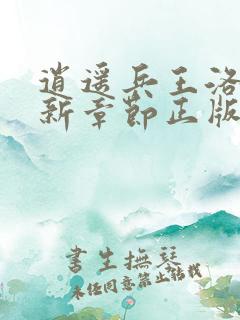 逍遥兵王洛
新章节正版
書生撫琴
未经同意禁止转载